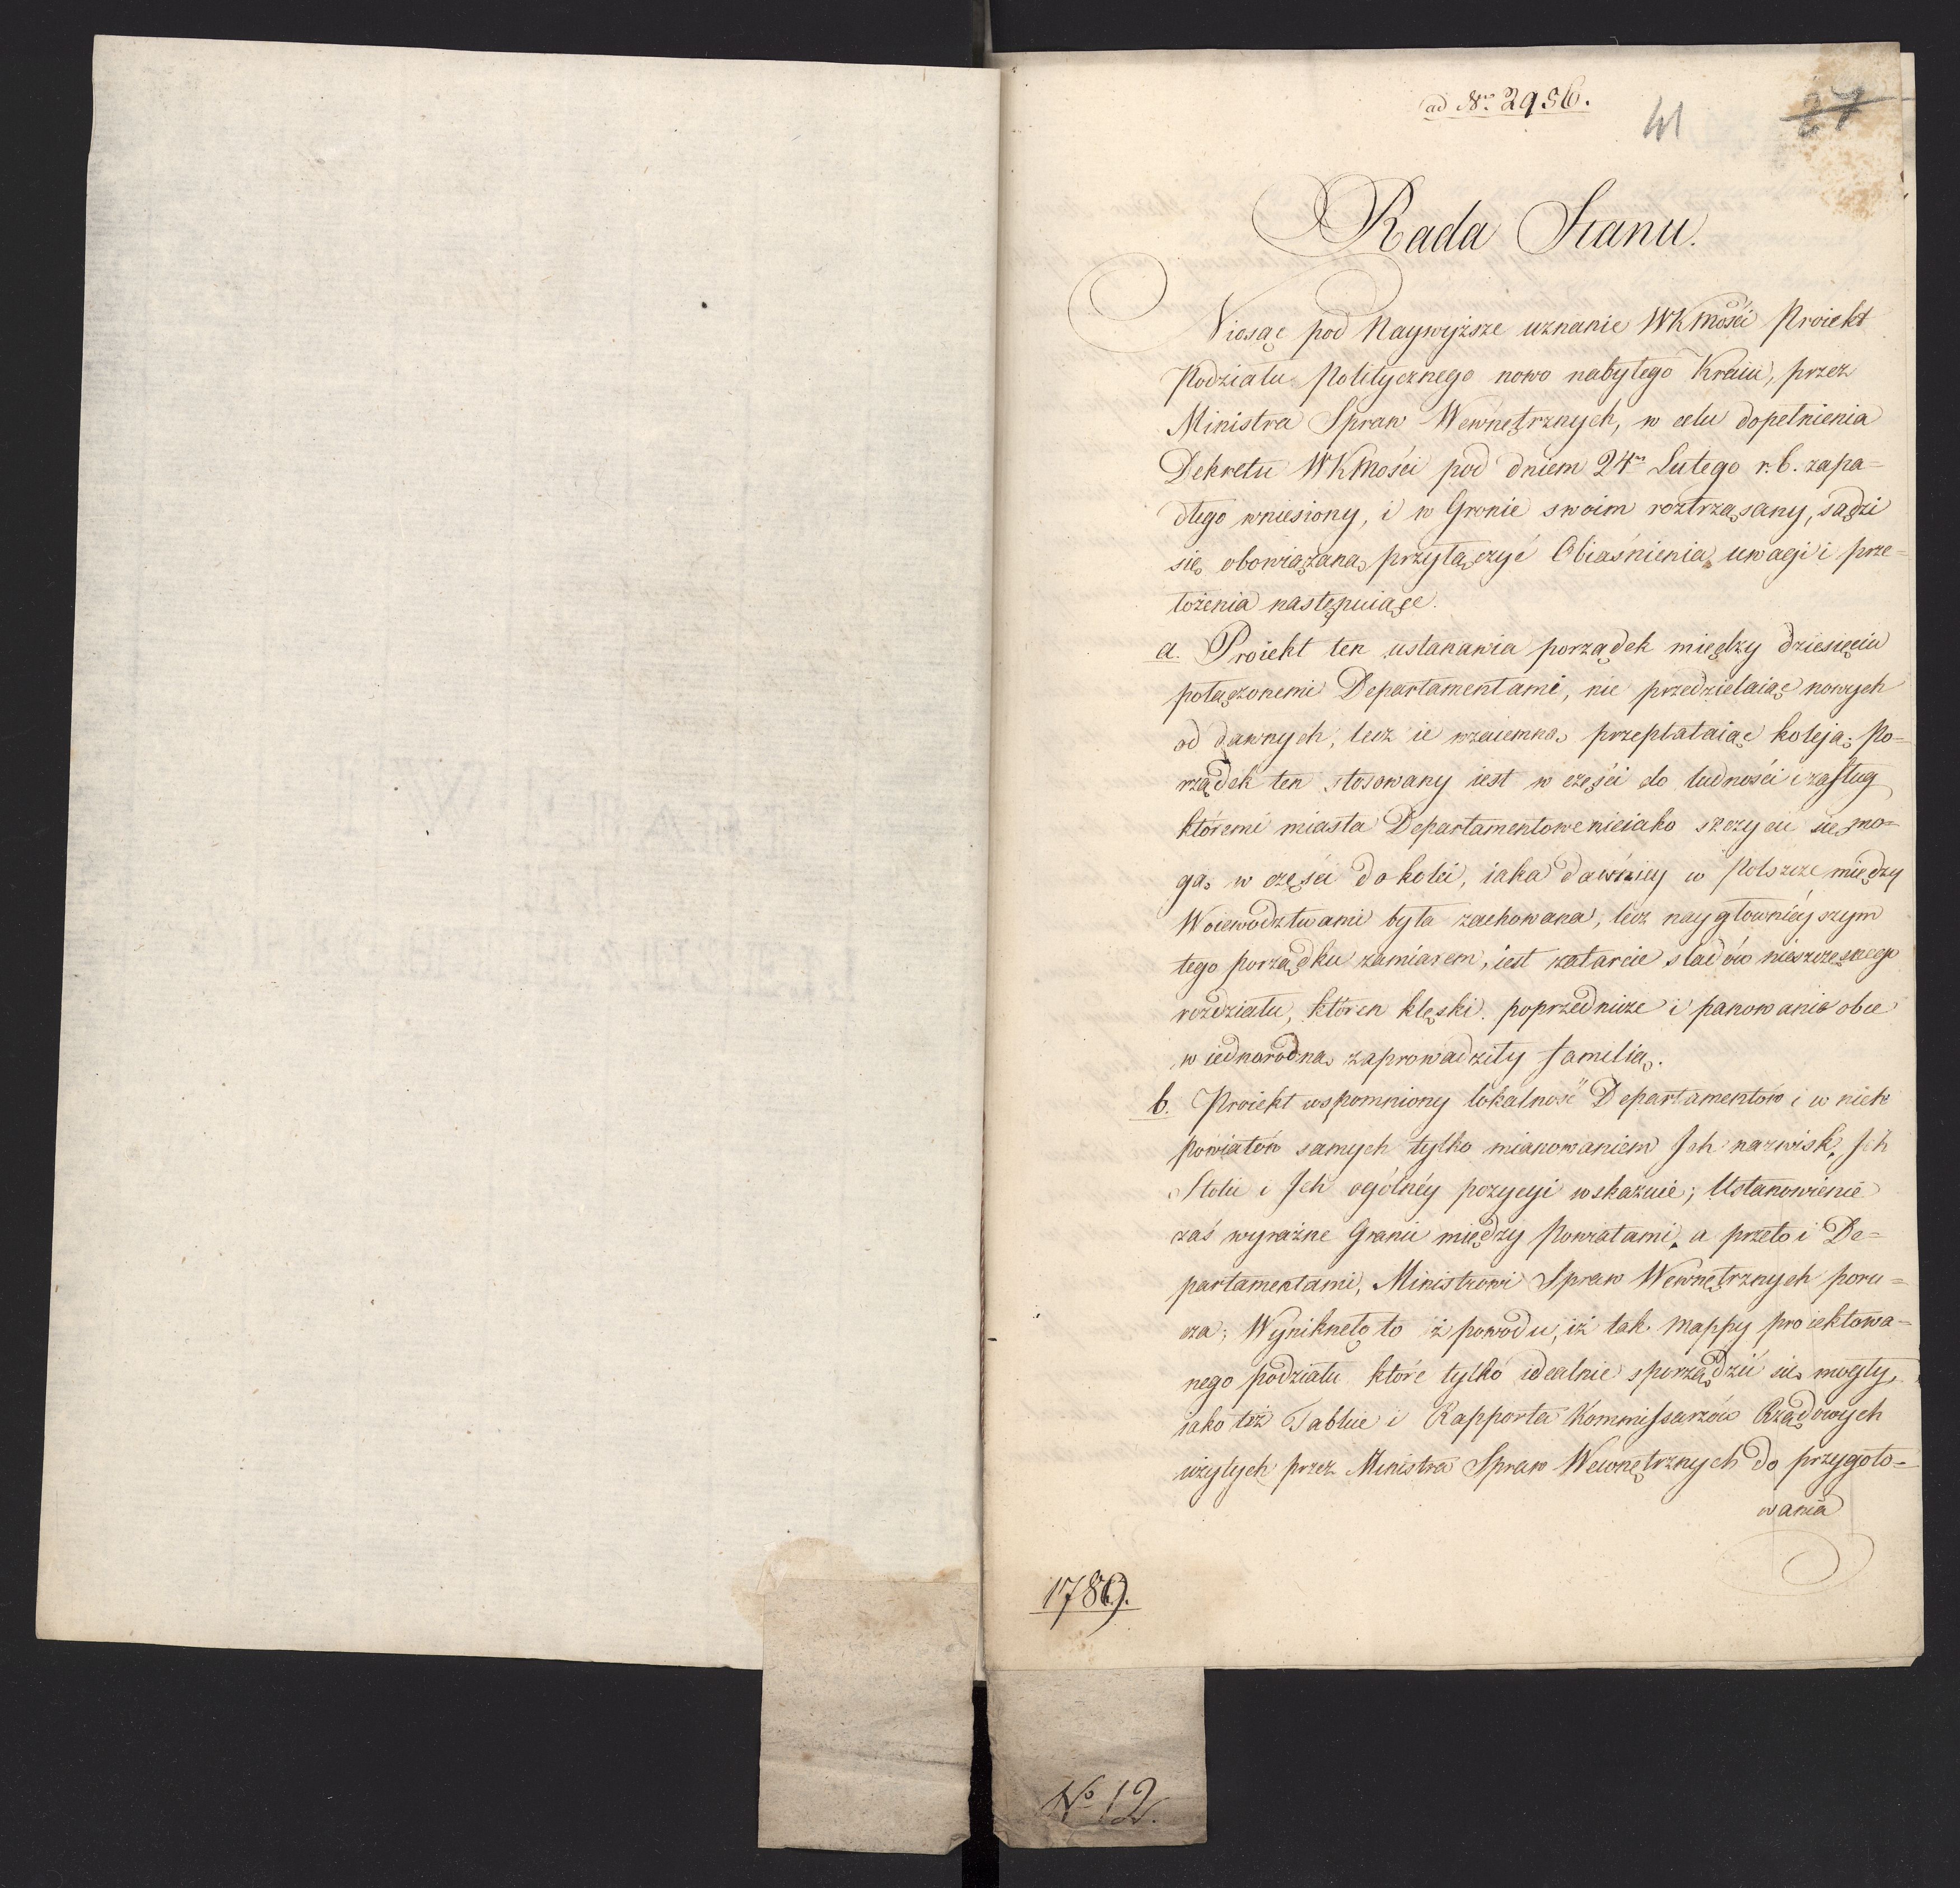 ad Nro 2956.
41
27
Rada Stanu.
Niosąc pod Naywyższe uznanie WKMości Proiekt
Podziału Politycznego nowo nabytego Kraiu, przez
Ministra Spraw Wewnętrznych, w celu dopełnienia
Dekretu WKMości pod dniem 24m Lutego r. b. zapa=
dłego wniesiony, i w Gronie swoim roztrząsany, sądzi
się obowiązaną przyłączyć Obiaśnienia uwagi i prze=
łożenia następuiące.
a. Proiekt ten ustanawia porządek między dziesięciu
połączonemi Departamentami, nie przedzielaiąc nowych
od dawnych, lecz ie wzaiemną przeplataiąc koleją; Po=
rządek ten stosowany iest w części do ludności i zasług
któremi miasta Departamentowe nieiako szczycić się mo=
gą, w części do kolei, iaka dawniey w Polszcze między
Woiewództwami była zachowana, lecz naygłownieyszym
tego porządku zamiarem, iest zatarcie sladów nieszczęsnego
rozdziału, któren klęski poprzednicze i panowania obce
w iednorodną zaprowadziły familią.
b. Proiekt wspomniony lokalność Departamentów i w nich
Powiatów samych tylko mianowaniem Ich nazwisk, Ich
Stolic i Ich ogólnéy pozycyi wskazuie; Ustanowienie
zaś wyraźne Granic między Powiatami, a przeto i De=
partamentami, Ministrowi Spraw Wewnętrznych poru=
cza; Wyniknęło to z powodu, iż tak Mappy proiektowa=
nego podziału które tylko idealnie sporządzić się mogły,
iako też Tablice i Rapporta Kommissarzów Rządowych
użytych przez Ministra Spraw Wewnętrznych do przygoto=
wania
1789.
No 12.